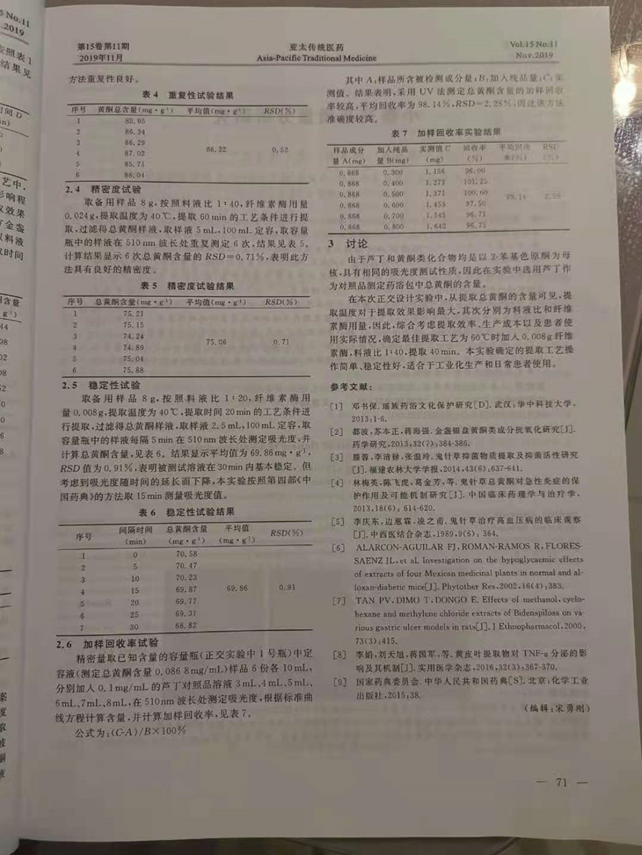 第15卷第11期
2019年11月
亚太传统医药
Asia-Pacific Traditional Medicine
Vol.15 No.11
Nov.2019
方法重复性良好。
表 4 重复性试验结果
序号 黄酮总含量(mg·g⁻¹) 平均值(mg·g⁻¹) RSD(%)
1
2 86.34
3 86.29
4 87.02 86.22 0.52
5 85.71
6 86.04
2.4 精密度试验
取备用样品 8 g,按照料液比 1∶40,纤维素酶用量
0.024 g,提取温度为 40℃,提取 60 min 的工艺条件进行提
取,过滤得总黄酮样液,取样液 5 mL,100 mL 定容,取容量
瓶中的样液在 510 nm 波长处重复测定 6 次,结果见表 5。
计算结果显示 6 次总黄酮含量的 RSD=0.71%,表明此方
法具有良好的精密度。
表 5 精密度试验结果
序号 总黄酮含量(mg·g⁻¹) 平均值(mg·g⁻¹) RSD(%)
1 75.21
2 75.15
3 74.24
4 74.89 75.06 0.71
5 75.04
6 75.88
2.5 稳定性试验
取备用样品 8 g,按照料液比 1∶20,纤维素酶用
量 0.008 g,提取温度为 40℃,提取时间 20 min 的工艺条件进
行提取,过滤得总黄酮样液,取样液 2.5 mL,100 mL 定容,取
容量瓶中的样液每隔 5 min 在 510 nm 波长处测定吸光度,并
计算总黄酮含量,见表 6。结果显示平均值为 69.86 mg·g⁻¹,
RSD 值为 0.91%,表明被测试溶液在 30 min 内基本稳定。但
考虑到吸光度随时间的延长而下降,本实验按照第四部《中
国药典》的方法取 15 min 测量吸光度值。
表 6 稳定性试验结果
序号 间隔时间(min) 总黄酮含量(mg·g⁻¹) 平均值(mg·g⁻¹) RSD(%)
1 0 70.58
2 5 70.47
3 10 70.23
4 15 69.87 69.86 0.91
5 20 69.77
6 25 69.31
7 30 68.82
2.6 加样回收率试验
精密量取已知含量的容量瓶(正交实验中 1 号瓶)中定
容液(测定总黄酮含量 0.086 8 mg/mL)样品 6 份各 10 mL,
分别加入 0.1 mg/mL 的芦丁对照品溶液 3 mL、4 mL、5 mL、
6 mL、7 mL、8 mL,在 510 nm 波长处测定吸光度,根据标准曲
线方程计算含量,并计算加样回收率,见表 7。
公式为:(C-A)/B×100%
其中 A:样品所含被检测成分量;B:加入纯品量;C:实
测值。结果表明,采用 UV 法测定总黄酮含量的加样回收
率较高,平均回收率为 98.14%,RSD=2.28%,因此该方法
准确度较高。
表 7 加样回收率实验结果
样品成分量 A(mg) 加入纯品量 B(mg) 实测值 C(mg) 回收率(%) 平均回收率(%) RSD(%)
0.868 0.300 1.156 96.00
0.868 0.400 1.273 101.25
0.868 0.500 1.371 100.60
0.868 0.600 1.453 97.50
0.868 0.700 1.545 96.71
0.868 0.800 1.642 96.75
3 讨论
由于芦丁和黄酮类化合物均是以 2-苯基色原酮为母
核,具有相同的吸光度测试性质,因此在实验中选用芦丁作
为对照品测定药浴包中总黄酮的含量。
在本次正交设计实验中,从提取总黄酮的含量可见,提
取温度对于提取效果影响最大,其次分别为料液比和纤维
素酶用量,因此,综合考虑提取效率、生产成本以及患者使
用实际情况,确定最佳提取工艺为 60℃时加入 0.008 g 纤维
素酶,料液比 1∶40,提取 40 min。本实验确定的提取工艺操
作简单、稳定性好,适合于工业化生产和日常患者使用。
参考文献:
[1] 邓书保.瑶族药浴文化保护研究[D].武汉:华中科技大学,
2013:1-6.
[2] 都波,苏本正,蒋海强.金盏银盘黄酮类成分抗氧化研究[J].
药学研究,2013,32(7):384-386.
[3] 滕蓉,李清禄,张温玲.鬼针草抑菌物质提取及抑菌活性研究
[J].福建农林大学学报,2014,43(6):637-641.
[4] 林梅英,陈飞虎,葛金芳,等.鬼针草总黄酮对急性炎症的保
护作用及可能机制研究[J].中国临床药理学与治疗学,
2013,18(6):614-620.
[5] 李庆东,边惠霖,凌之甫.鬼针草治疗高血压病的临床观察
[J].中西医结合杂志,1989,9(6):364.
[6] ALARCON-AGUILAR FJ,ROMAN-RAMOS R,FLORES-
SAENZ JL,et al. Investigation on the hypoglycaemic effects
of extracts of four Mexican medicinal plants in normal and al-
loxan-diabetic mice[J]. Phytother Res,2002,16(4):383.
[7] TAN PV,DIMO T,DONGO E. Effects of methanol,cyclo-
hexane and methylene chloride extracts of Bidenspilosa on va-
rious gastric ulcer models in rats[J]. J Ethnopharmacol,2000,
73(3):415.
[8] 李娟,刘天旭,蒋国军,等.黄皮叶提取物对 TNF-α 分泌的影
响及其机制[J].实用医学杂志,2016,32(3):367-370.
[9] 国家药典委员会.中华人民共和国药典[S].北京:化学工业
出版社,2015:38.
(编辑:宋勇刚)
— 71 —